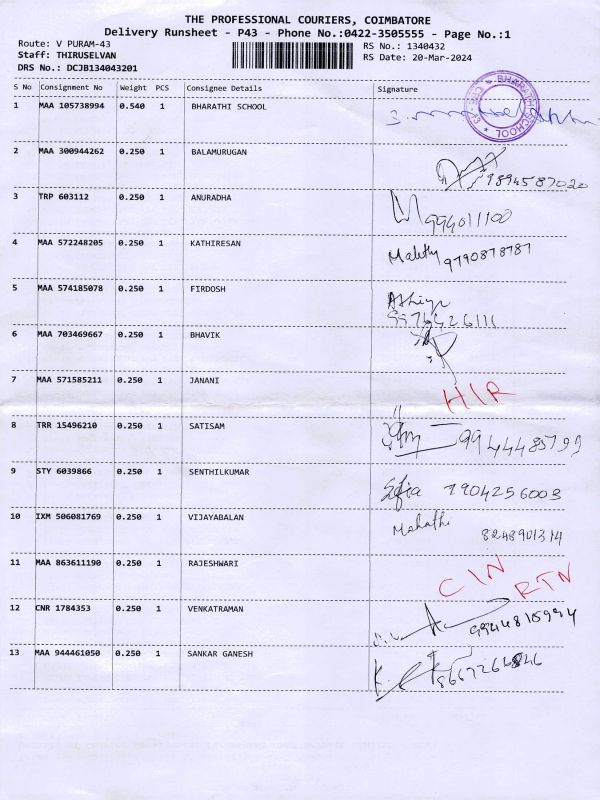 THE PROFESSIONAL COURIERS, COIMBATORE
Delivery Runsheet - P43 - Phone No.:0422-3505555 - Page No.:1
Route: V PURAM-43 RS No.: 1340432
Staff: THIRUSELVAN RS Date: 20-Mar-2024
DRS No.: DCJB134043201
S No Consignment No Weight PCS Consignee Details Signature
1 MAA 105738994 0.540 1 BHARATHI SCHOOL
BHARATHI SCHOOL CBE-43
2 MAA 300944262 0.250 1 BALAMURUGAN
9894587020
3 TRP 603112 0.250 1 ANURADHA
994011100
4 MAA 572248205 0.250 1 KATHIRESAN
9790878787
5 MAA 574185078 0.250 1 FIRDOSH
9976426111
6 MAA 703469667 0.250 1 BHAVIK
7 MAA 571585211 0.250 1 JANANI
8 TRR 15496210 0.250 1 SATISAM
9944485799
9 STY 6039866 0.250 1 SENTHILKUMAR
Sofia 7904256003
10 IXM 506081769 0.250 1 VIJAYABALAN
Mahathi 8248901314
11 MAA 863611190 0.250 1 RAJESHWARI
CIN RTN
12 CNR 1784353 0.250 1 VENKATRAMAN
9944815994
13 MAA 944461050 0.250 1 SANKAR GANESH